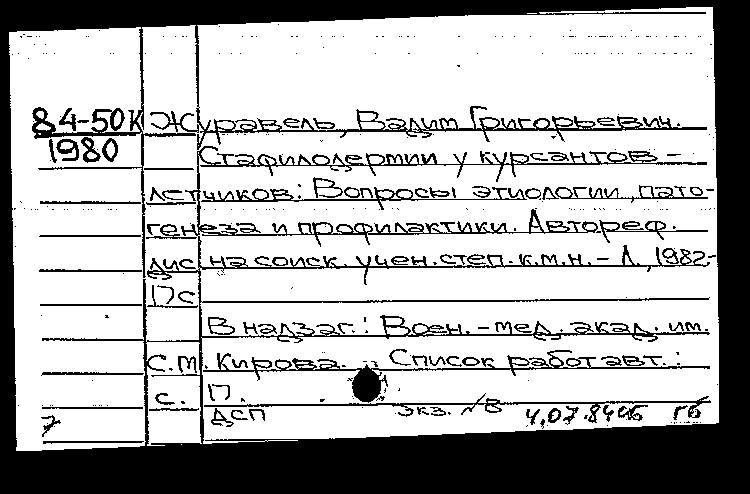 84-50К Журавель, Вадим Григорьевич.
1980 Стафилодермии у курсантов -
летчиков: Вопросы этиологии, пато-
генеза и профилактики. Автореф.
дис. на соиск. учен. степ. к.м.н. - Л., 1982.-
17с
В надзаг.: Воен. - мед. акад. им.
С.М. Кирова. - Список работ авт.:
с. 17.
ДСП экз. № 4.07.84